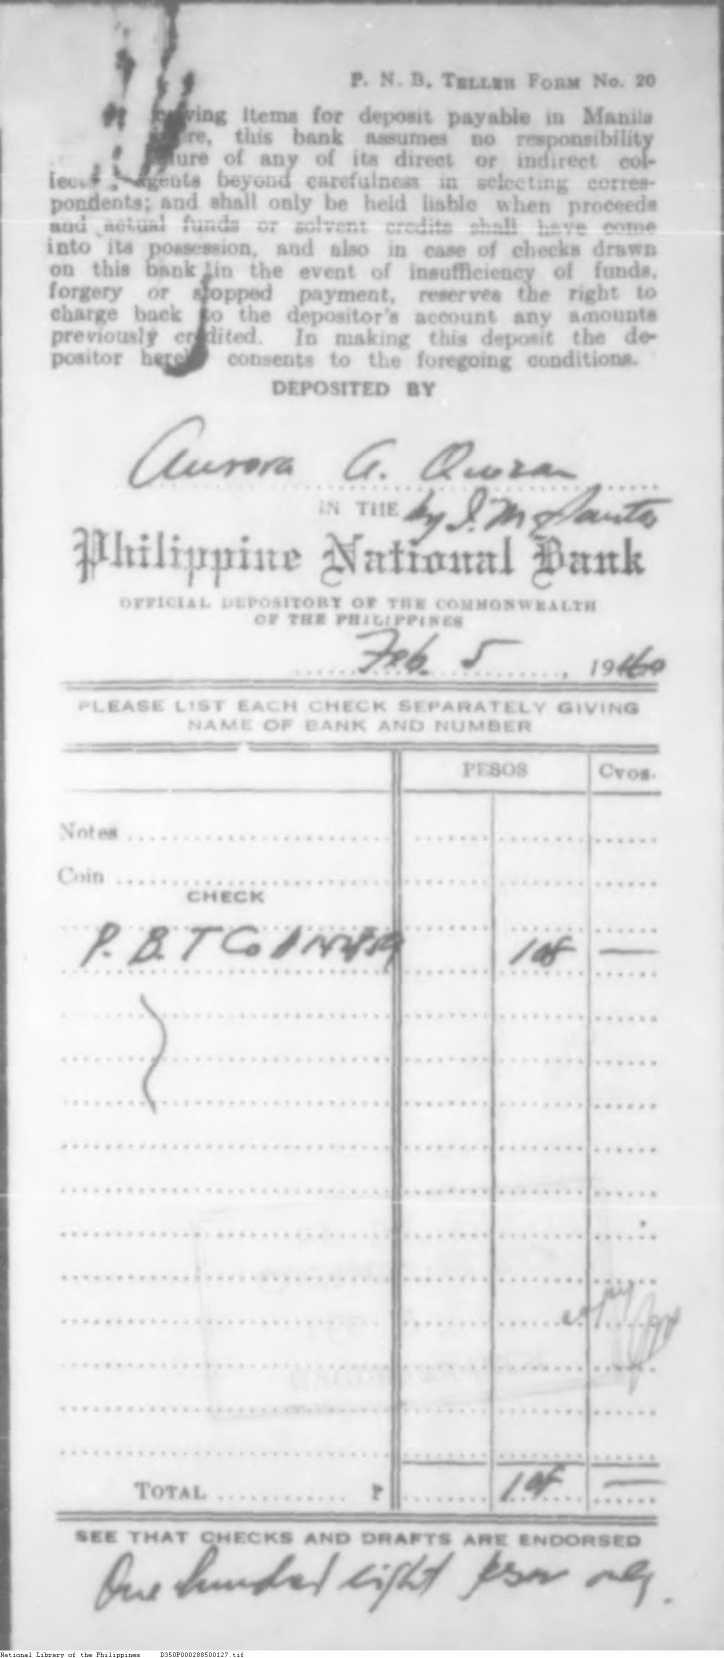 P. N. B. TELLER FORM No. 20
items for deposit payable in Manila
this bank assumes no responsibility
of any of its direct or indirect col-
agents beyond carefulness in selecting corres-
pondents; and shall only be held liable when proceeds
and actual funds or solvent credits shall have come
into its possession, and also in case of checks drawn
on this bank in the event of insufficiency of funds,
forgery or stopped payment, reserves the right to
charge back to the depositor's account any amounts
previously credited. In making this deposit the de-
positor hereby consents to the foregoing conditions.
DEPOSITED BY
Aurora A. Quezon
IN THE by J. M. Santos
Philippine National Bank
OFFICIAL DEPOSITORY OF THE COMMONWEALTH
OF THE PHILIPPINES
Feb. 5, 1940
PLEASE LIST EACH CHECK SEPARATELY GIVING
NAME OF BANK AND NUMBER
PESOS Cvos.
Notes
Coin
CHECK
P. B. T Co 108 —
copy
TOTAL ₱ 108 —
SEE THAT CHECKS AND DRAFTS ARE ENDORSED
One hundred eight pesos only.
National Library of the Philippines D350P000288500127.tif